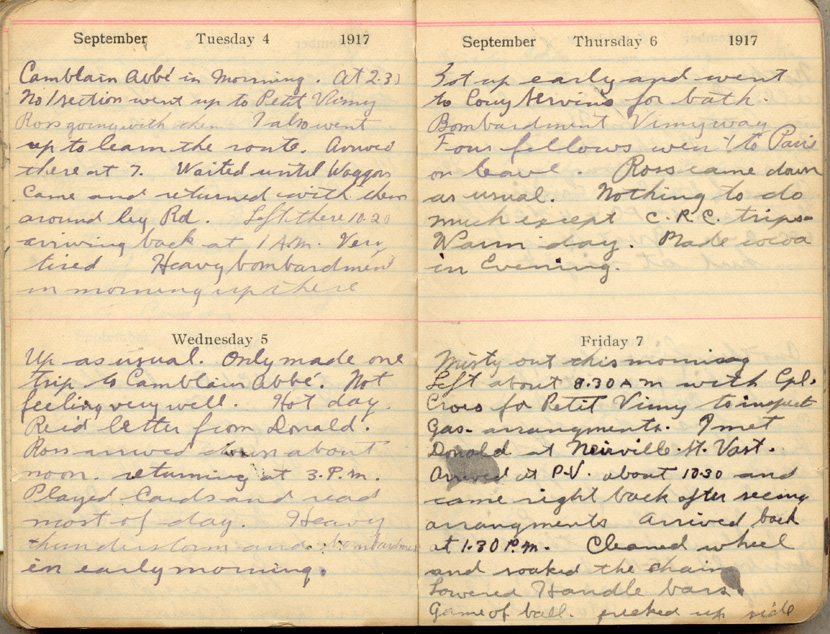 September Tuesday 4 1917
Camblain Abbé in Morning. At 2.30
No 1 section went up to Petit Vimy
Ross going with them I also went
up to learn the route. Arrived
there at 7. Waited until Waggons
came and returned with them
around by Rd. Left there 10.20
arriving back at 1 A.M. Very
tired Heavy bombardment
in morning up there
Wednesday 5
Up as usual. Only made one
trip to Camblain Abbé. Not
feeling very well. Hot day.
Rec'd letter from Donald.
Ross arrived down about
noon. returning at 3.P.M.
Played Cards and read
most of day. Heavy
thunderstorm and bombardment
in early morning.
September Thursday 6 1917
Got up early and went
to Couy Servins for bath.
Bombardment Vimy way
Four fellows went to Paris
on leave. Ross came down
as usual. Nothing to do
much except C.R.C. trips.
Warm day. Made cocoa
in Evening.
Friday 7
Misty out this morning
Left about 8.30 AM with Cpl.
Cross for Petit Vimy to inspect
Gas. arrangments. I met
Donald at Neuville-St. Vast.
Arrived at P-V. about 10.30 and
came right back after seeing
arrangments Arrived back
at 1.30 P.M. Cleaned wheel
and soaked the chain
Lowered Handle bars.
Game of ball. picked up side